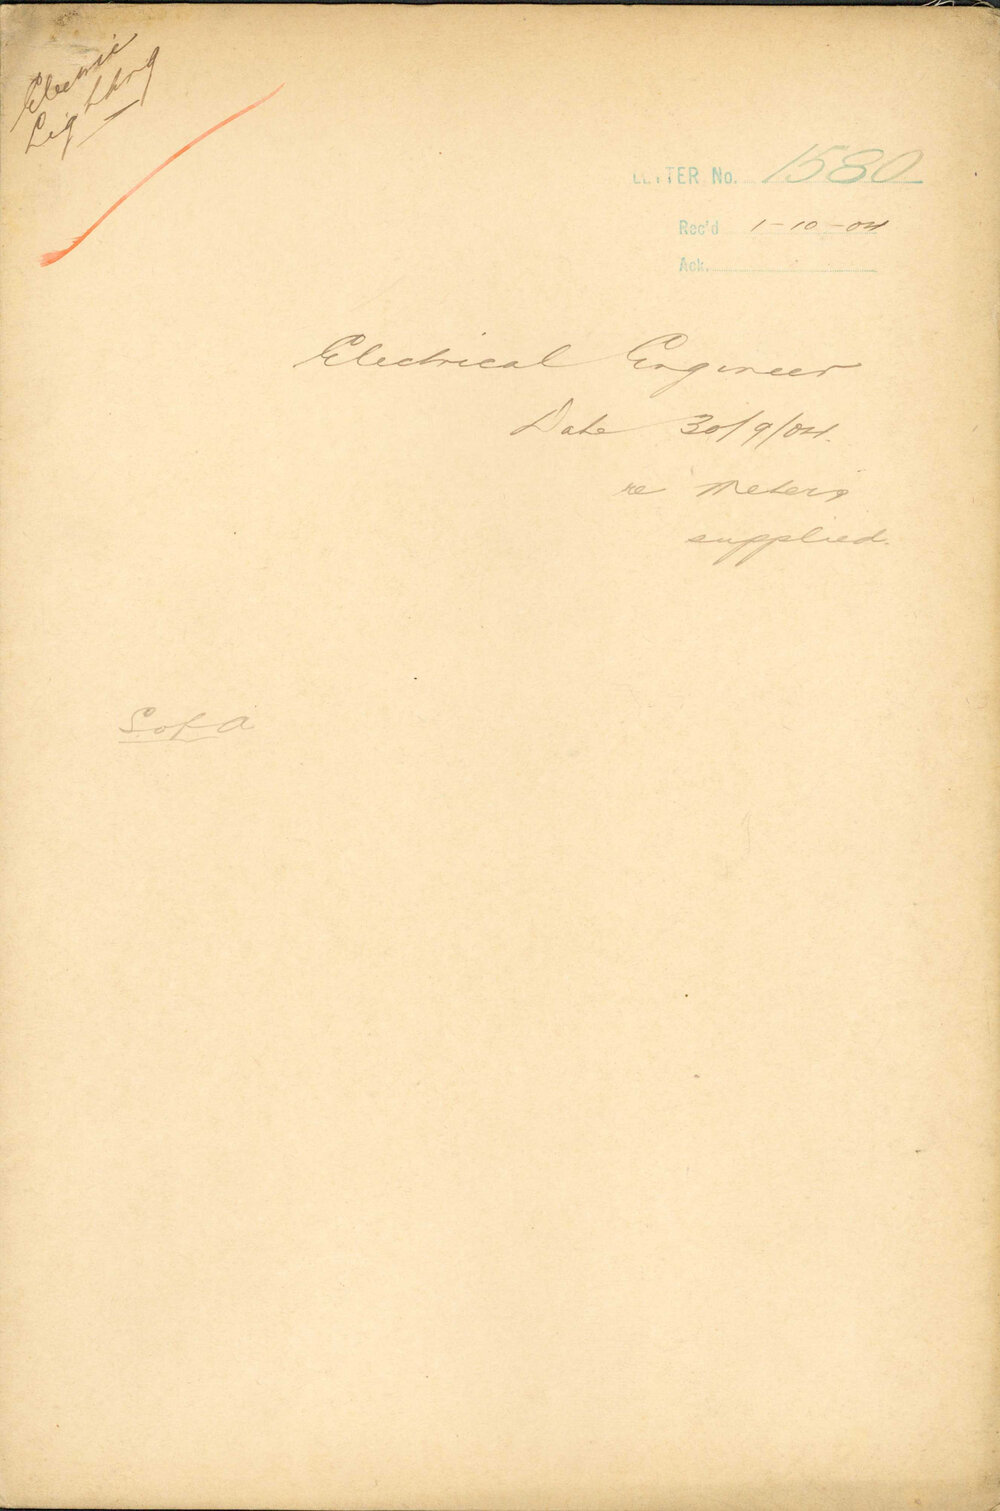 Electric
Lighting
LETTER No. 1580
Rec'd 1-10-04
Ack.
Electrical Engineer
Date 30/9/04.
re Meters
supplied.
S of A